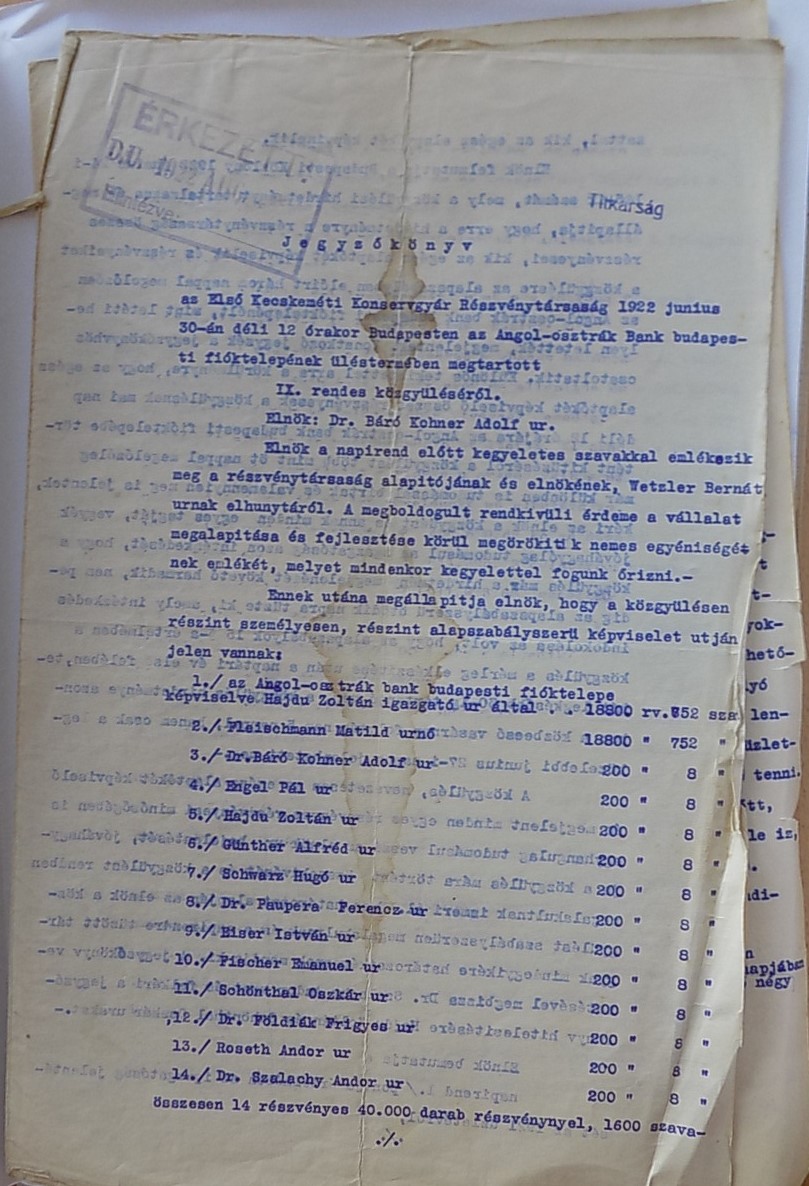 ÉRKEZETT
D.U. 1922
Elintézve:
Titkárság
Jegyzőkönyv
az Első Kecskeméti Konservgyár Részvénytársaság 1922 junius
30-án déli 12 órakor Budapesten az Angol-osztrák Bank budapes-
ti fióktelepének üléstermében megtartott
IX. rendes közgyüléséről.
Elnök: Dr. Báró Kohner Adolf ur.
Elnök a napirend előtt kegyeletes szavakkal emlékezik
meg a részvénytársaság alapitójának és elnökének, Wetzler Bernát
urnak elhunytáról. A megboldogult rendkivüli érdeme a vállalat
megalapitása és fejlesztése körül megörökitik nemes egyéniségé-
nek emlékét, melyet mindenkor kegyelettel fogunk őrizni.-
Ennek utána megállapitja elnök, hogy a közgyülésen
részint személyesen, részint alapszabályszerü képviselet utján
jelen vannak:
1./ az Angol-osztrák bank budapesti fióktelepe
képviselve Hajdu Zoltán igazgató ur által . . 18800 rv. 752 sza
2./ Fleischmann Matild urnő 18800 " 752 "
3./ Dr.Báró Kohner Adolf ur 200 " 8 "
4./ Engel Pál ur 200 " 8 "
5./ Hajdu Zoltán ur 200 " 8 "
6./ Günther Alfréd ur 200 " 8 "
7./ Schwarz Hugó ur 200 " 8 "
8./ Dr. Paupera Ferencz ur 200 " 8 "
9./ Hiser István ur 200 " 8 "
10./ Fischer Emanuel ur 200 " 8 "
11./ Schönthal Oszkár ur 200 " 8 "
12./ Dr. Földiák Frigyes ur 200 " 8 "
13./ Roseth Andor ur 200 " 8 "
14./ Dr. Szalachy Andor ur 200 " 8 "
összesen 14 részvényes 40.000 darab részvénynyel, 1600 szava-
./.